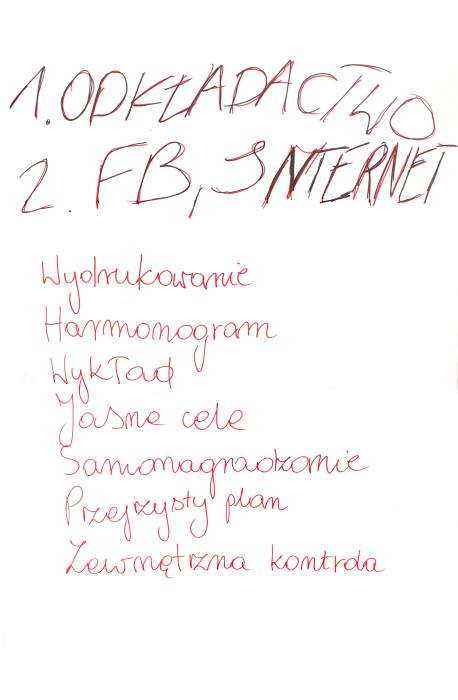 1. ODKŁADACTWO
2. FB, INTERNET
Wydrukowanie
Harmonogram
Wykład
Jasne cele
Samonagradzanie
Przejrzysty plan
Zewnętrzna kontrola